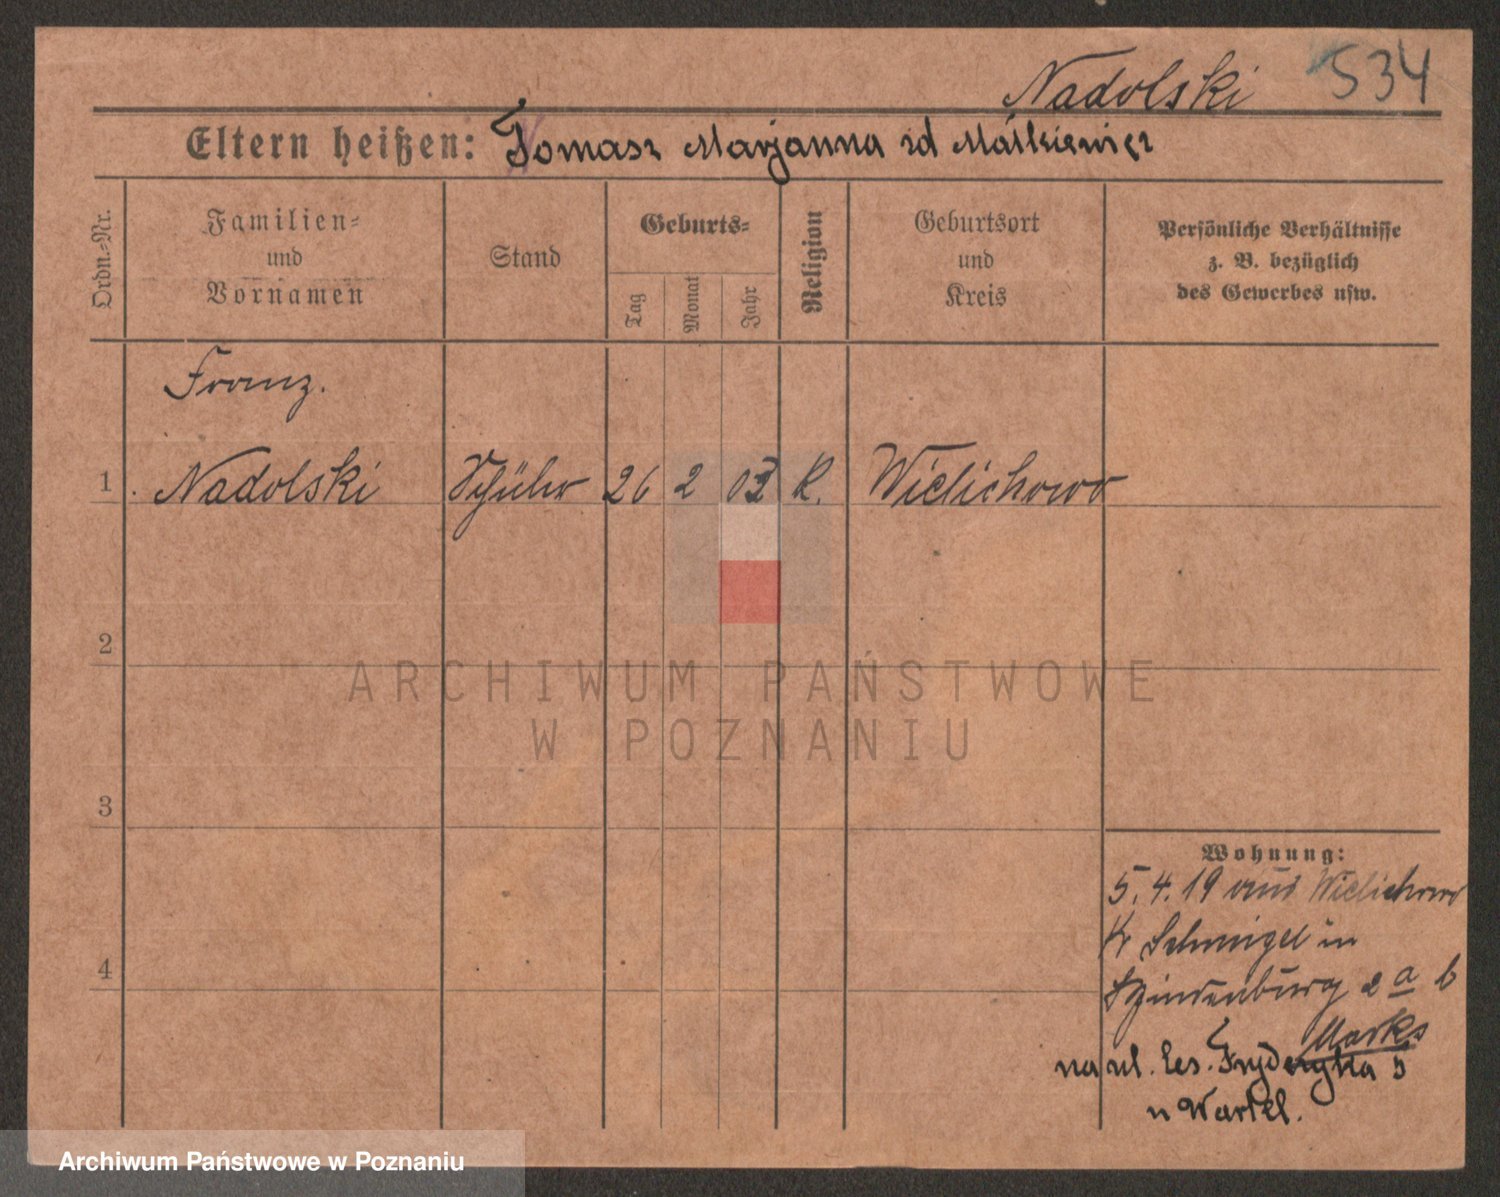 Nadolski 534
Eltern heißen: Tomasz Marjanna zd Matkiewicz
Ordn.-Nr.
Familien-
und
Vornamen
Stand
Geburts-
Tag
Monat
Jahr
Religion
Geburtsort
und
Kreis
Persönliche Verhältnisse
z. B. bezüglich
des Gewerbes usw.
Franz.
1 Nadolski Schüler 26 2 03 K. Wielichowo
2
3
4
Wohnung:
5. 4. 19 aus Wielichowo
Kr Schmigel in
Hindenburg 2 a b
Marks
na ul. Ces. Fryderyka 5
u Wartel.
ARCHIWUM PAŃSTWOWE
W POZNANIU
Archiwum Państwowe w Poznaniu